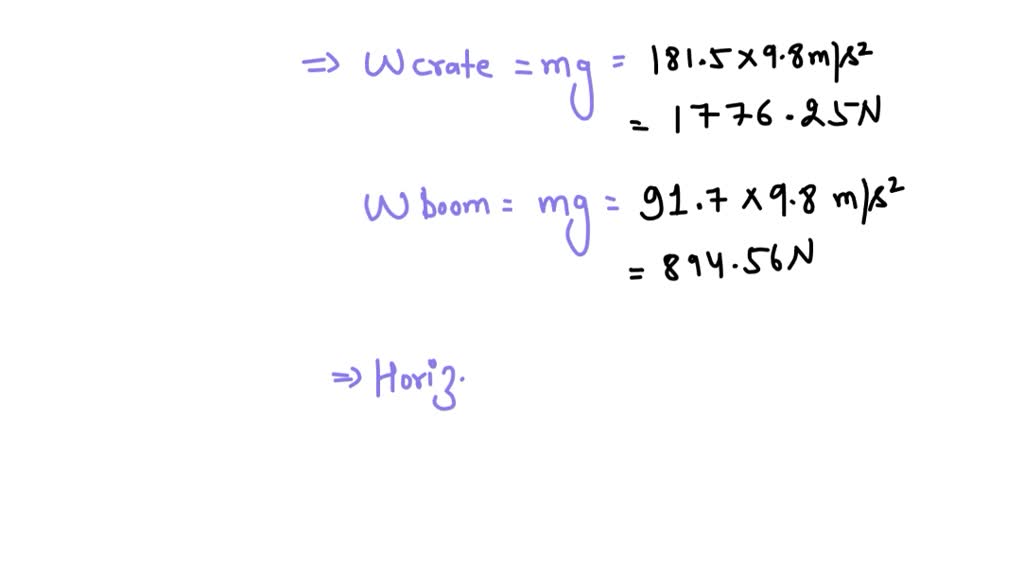 ⇒ Wcrate = mg = 181.5 × 9.8 m/s²
= 1776.25N
W boom = mg = 91.7 × 9.8 m/s²
= 894.56N
⇒ Horiz.